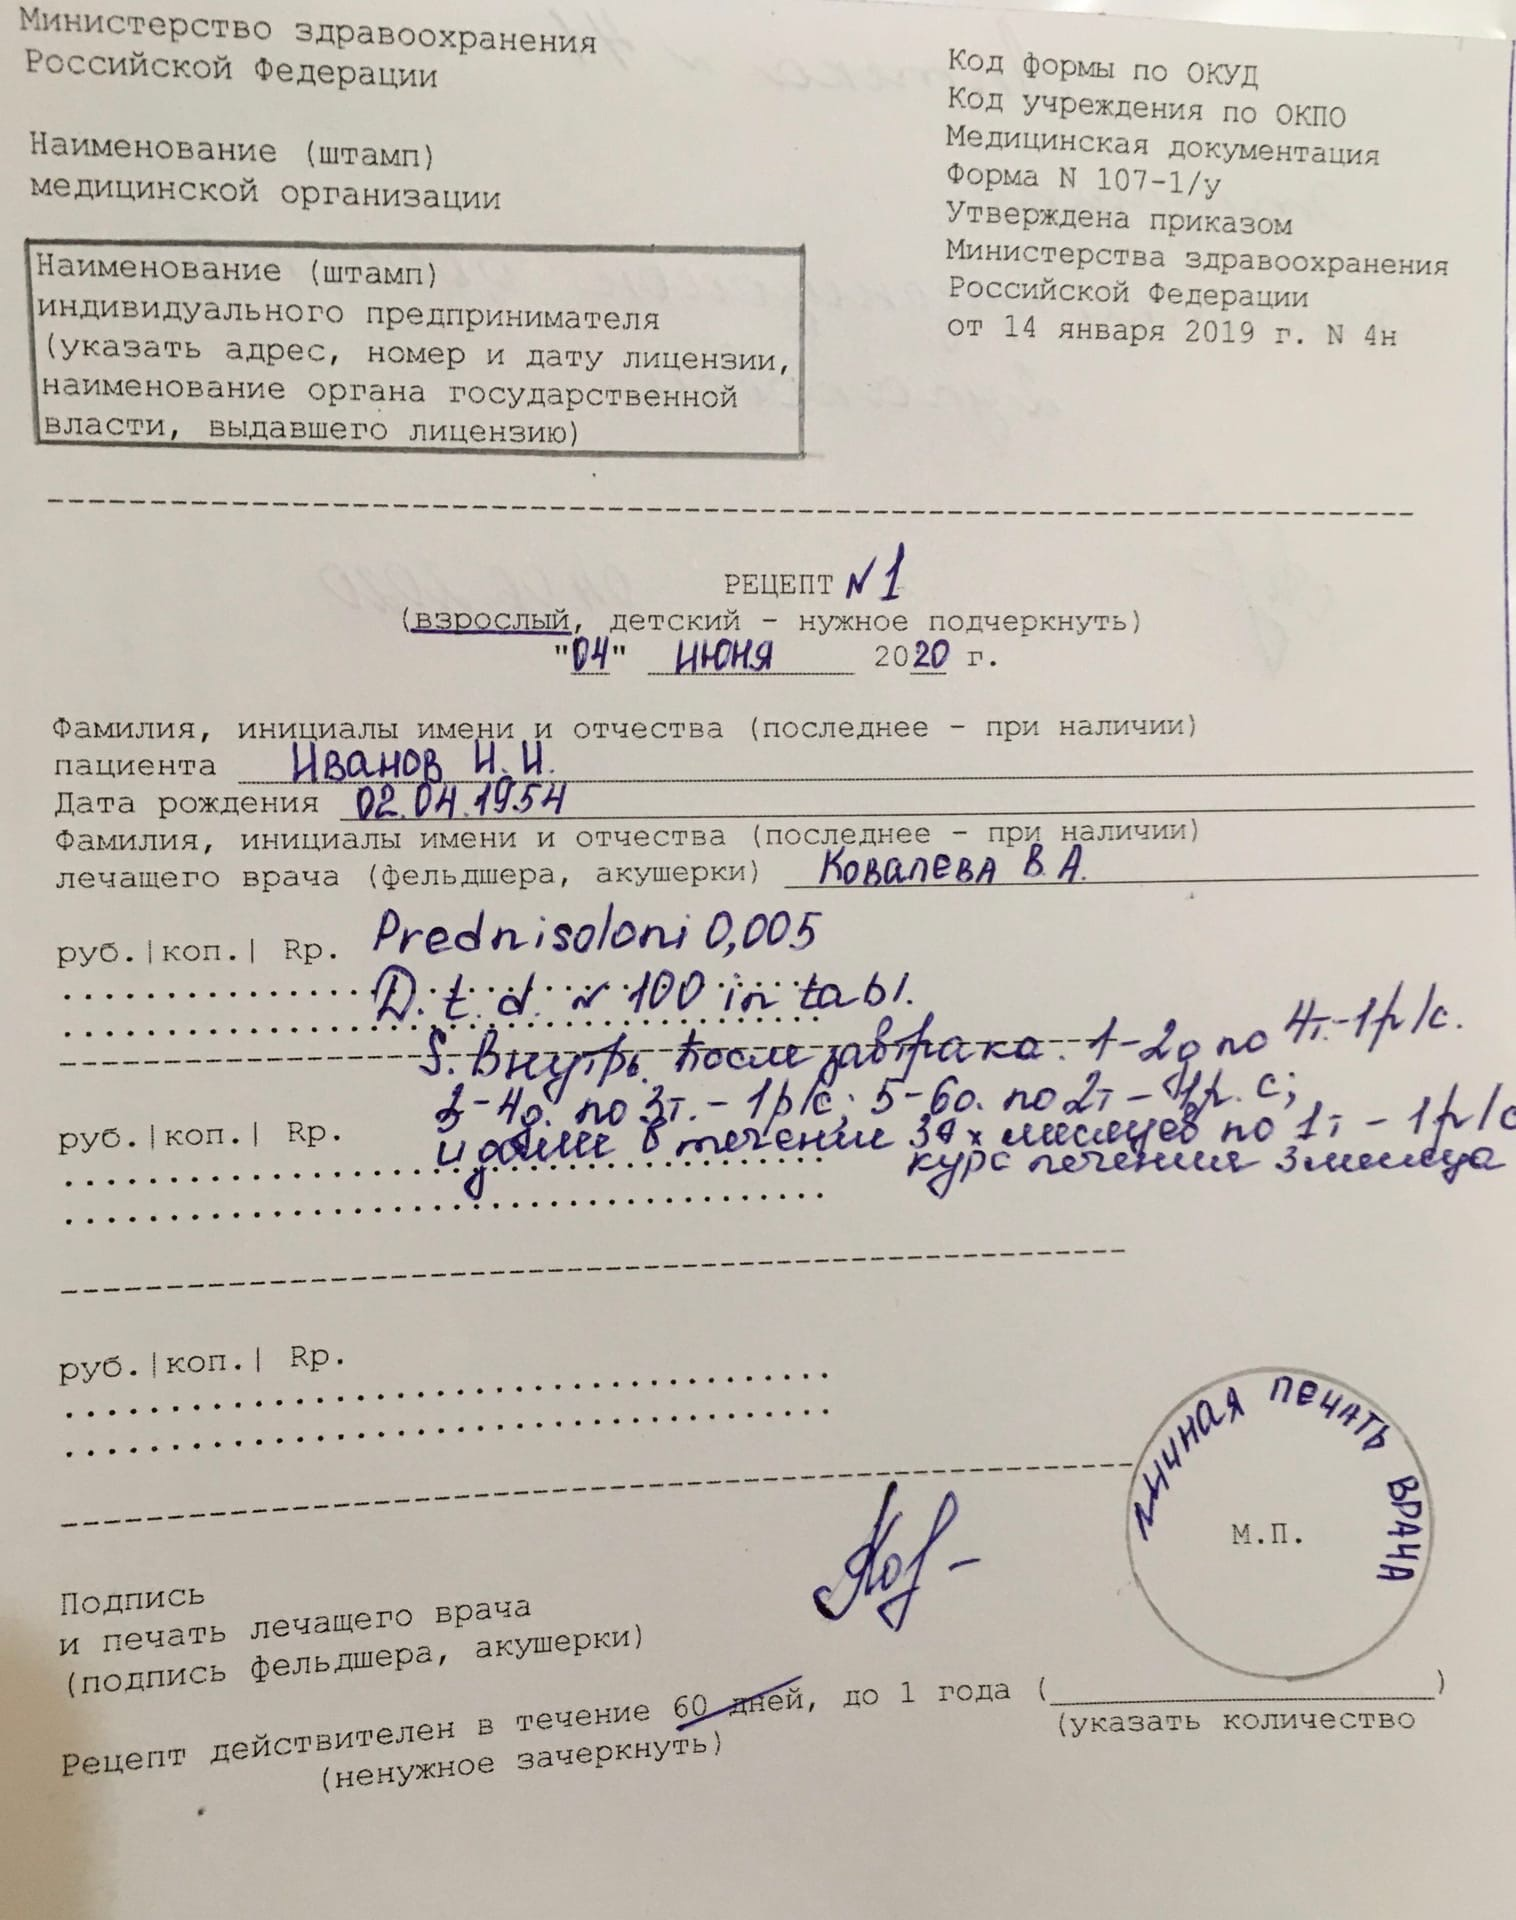 Министерство здравоохранения
Российской Федерации
Наименование (штамп)
медицинской организации
Наименование (штамп)
индивидуального предпринимателя
(указать адрес, номер и дату лицензии,
наименование органа государственной
власти, выдавшего лицензию)
Код формы по ОКУД
Код учреждения по ОКПО
Медицинская документация
Форма N 107-1/у
Утверждена приказом
Министерства здравоохранения
Российской Федерации
от 14 января 2019 г. N 4н
РЕЦЕПТ N 1
(взрослый, детский - нужное подчеркнуть)
"04" июня 2020 г.
Фамилия, инициалы имени и отчества (последнее - при наличии)
пациента Иванов И. И.
Дата рождения 02.04.1954
Фамилия, инициалы имени и отчества (последнее - при наличии)
лечащего врача (фельдшера, акушерки) Ковалева В. А.
руб.|коп.| Rp. Prednisoloni 0,005
D. t. d. N 100 in tabl.
S. Внутрь. После завтрака. 1-2д по 4т.-1р/с.
3-4д. по 3т. - 1р/с; 5-6д. по 2т - 1р. с;
руб.|коп.| Rp.
и далее в течении 3х месяцев по 1т - 1р/с
курс лечения 3 месяца
руб.|коп.| Rp.
личная печать врача
М.П.
Подпись
и печать лечащего врача
(подпись фельдшера, акушерки)
Рецепт действителен в течение 60 дней, до 1 года (____________)
(ненужное зачеркнуть)
(указать количество